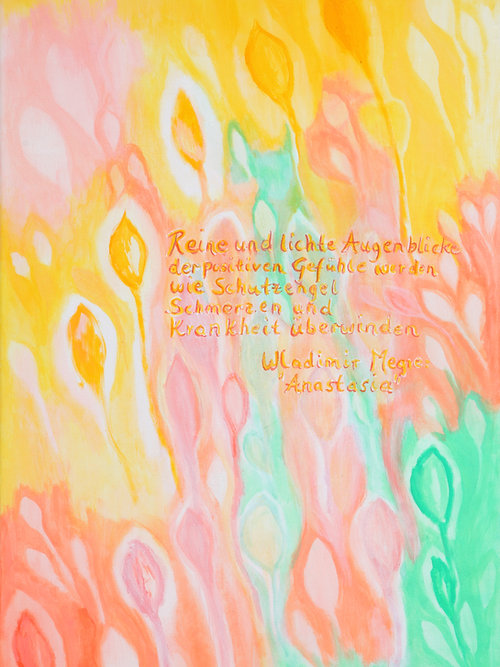 Reine und lichte Augenblicke
der positiven Gefühle werden
wie Schutzengel
Schmerzen und
Krankheit überwinden
Wladimir Megre
"Anastasia"